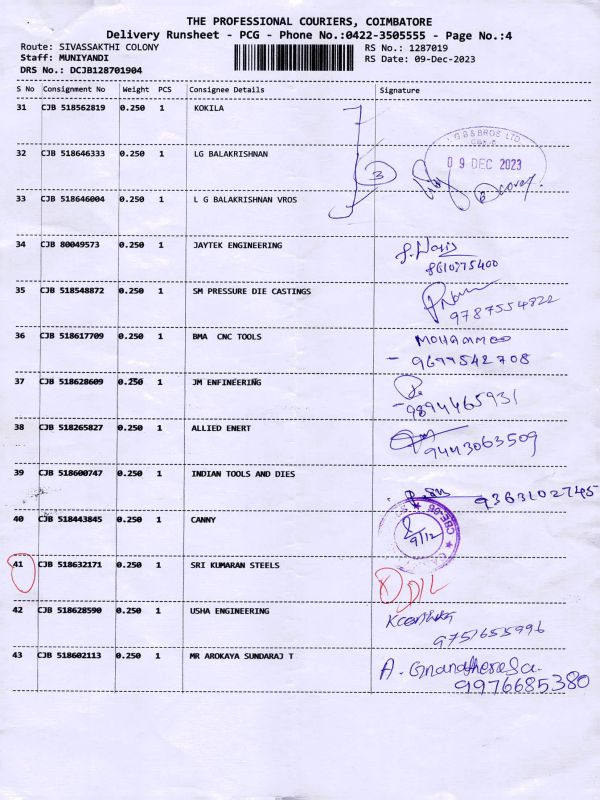 THE PROFESSIONAL COURIERS, COIMBATORE
Delivery Runsheet - PCG - Phone No.:0422-3505555 - Page No.:4
Route: SIVASSAKTHI COLONY RS No.: 1287019
Staff: MUNIYANDI RS Date: 09-Dec-2023
DRS No.: DCJB128701904
S No Consignment No Weight PCS Consignee Details Signature
31 CJB 518562819 0.250 1 KOKILA
32 CJB 518646333 0.250 1 LG BALAKRISHNAN
3
09 DEC 2023
33 CJB 518646004 0.250 1 L G BALAKRISHNAN VROS
34 CJB 80049573 0.250 1 JAYTEK ENGINEERING
8610775400
35 CJB 518548872 0.250 1 SM PRESSURE DIE CASTINGS
9787554822
36 CJB 518617709 0.250 1 BMA CNC TOOLS MOHAMMED
- 9677542708
37 CJB 518628609 0.250 1 JM ENFINEERING
- 9894465931
38 CJB 518265827 0.250 1 ALLIED ENERT
9443063509
39 CJB 518600747 0.250 1 INDIAN TOOLS AND DIES
9363102745
40 CJB 518443845 0.250 1 CANNY
9/12
41 CJB 518632171 0.250 1 SRI KUMARAN STEELS
X D/L
42 CJB 518628590 0.250 1 USHA ENGINEERING
9751655996
43 CJB 518602113 0.250 1 MR AROKAYA SUNDARAJ T
9976685380